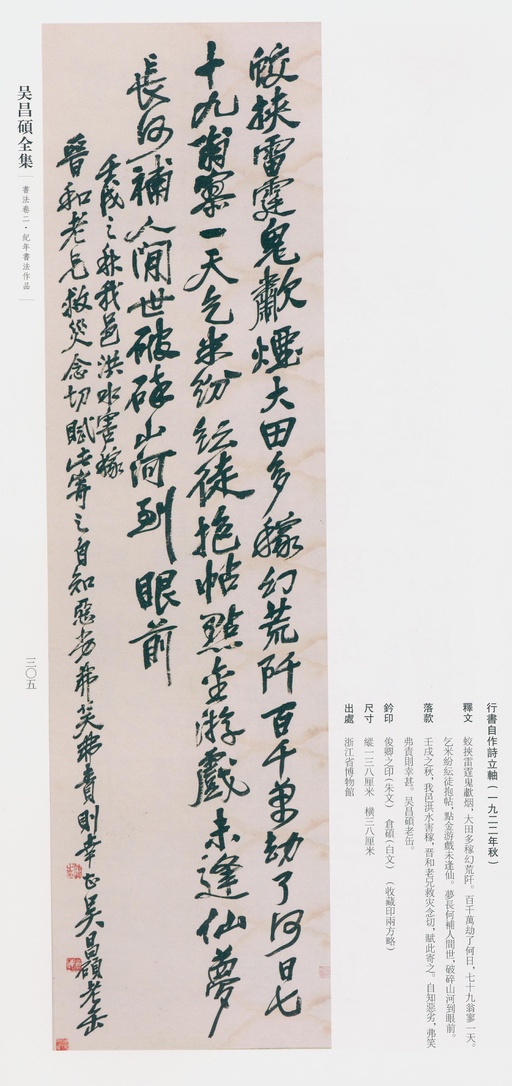 行書自作詩立軸(一九二二年秋)
釋文 蛟挾雷霆鬼歗烟,大田多稼幻荒阡。百千萬劫了何日,七十九翁寥一天。
乞米紛紜徒抱帖,點金游戲未逢仙。夢長何補人間世,破碎山河到眼前。
落款 壬戌之秋,我邑洪水害稼,晋和老兄救灾念切,賦此寄之。自知惡劣,弗笑
弗責則幸甚。吴昌碩老缶。
鈐印 俊卿之印(朱文) 倉碩(白文) (收藏印兩方略)
尺寸 縱一三八厘米 橫三八厘米
出處 浙江省博物館
蛟挾雷霆鬼歗煙大田多稼幻荒阡百千萬劫了何日七
十九翁寥一天乞米紛紜徒抱帖點金游戲未逢仙夢
長何補人間世破碎山河到眼前
壬戌之秋我邑洪水害稼
晉和老兄救災念切賦此寄之自知惡劣弗笑弗責則幸甚吳昌碩老缶
吴昌碩全集
書法卷二·紀年書法作品
三〇五